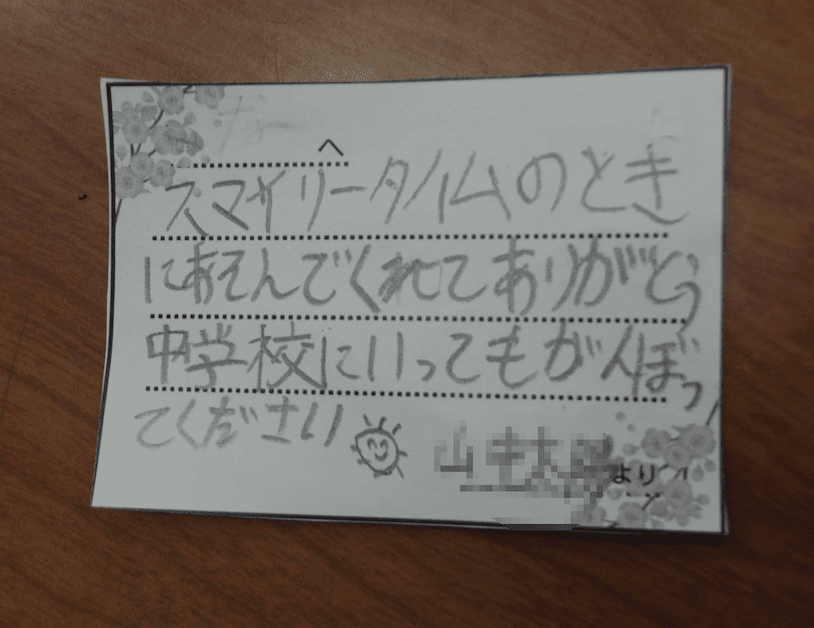 へ
スマイリータイムのとき
にあそんでくれてありがとう
中学校にいってもがんぼっ
てください
より